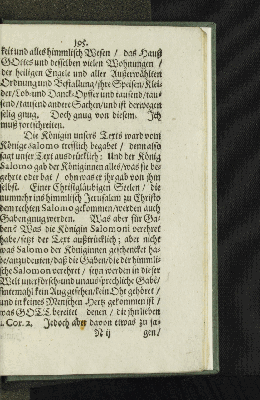 195.
keit und alles himmlisch Wesen / das Hauß
GOttes und desselben vielen Wohnungen /
der heiligen Engele und aller Außerwählten
Ordnung und Bestallung / ihre Speisen / Klei-
der / Lob- und Danck-Opffer und tausend / tau-
send / tausend andere Sachen / und ist derwegen
selig gnug. Doch gnug von diesem. Ich
muß fortschreiten.
Die Königin unsers Texts ward vom
Könige Salomo trefflich begabet / denn also
sagt unser Text ausdrücklich: Und der König
Salomo gab der Königinnen alles / was sie be-
gehrte oder bat / ohn was er ihr gab von ihm
selbst. Einer Christgläubigen Seelen / die
nunmehr ins himmlisch Jerusalem zu Christo
dem rechten Salomo gekommen / werden auch
Gaben gnug werden. Was aber für Ga-
ben? Was die Königin Salomoni verehret
habe / setzt der Text außtrücklich; aber nicht
was Salomo der Königinnen geschencket ha-
be / anzudeuten / daß die Gaben / die der himmli-
sche Salomon verehret / seyn werden in dieser
Welt unerforsch- und unaussprechliche Gabē /
sintemahl kein Aug gesehen / kein Ohr gehöret /
und in keines Menschen Hertz gekommen ist /
was GOTT bereitet denen / die jhn lieben
1. Cor. 2. Jedoch aber davon etwas zu sa-
N ij gen /